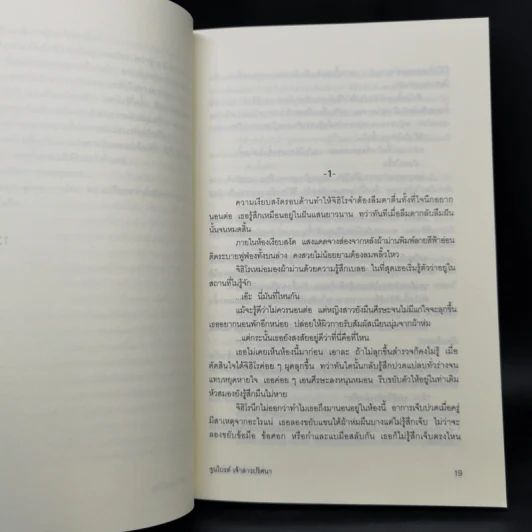 -1-
ความเงียบสงัดรอบด้านทำให้จิฮิโรจำต้องลืมตาตื่นทั้งที่ใจนึกอยาก
นอนต่อ เธอรู้สึกเหมือนอยู่ในฝันแสนยาวนาน ทว่าทันทีเมื่อลืมตากลับลืมฝัน
นั้นจนหมดสิ้น
ภายในห้องเงียบสงัด แสงแดดจางส่องจากหลังผ้าม่านพิมพ์ลายสีฟ้าอ่อน
ติดระบายฟูฟ่องทั้งบนล่าง คงสวยไม่น้อยยามต้องลมพลิ้วไหว
จิฮิโรเหม่อมองผ้าม่านด้วยความรู้สึกเบลอ ในที่สุดเธอเริ่มรู้ตัวว่าอยู่ใน
สถานที่ไม่รู้จัก
...เอ๊ะ นี่มันที่ไหนกัน
แม้จะรู้ดีว่าไม่ควรนอนต่อ แต่หญิงสาวยังมึนศีรษะจนไม่มีแก่ใจจะลุกขึ้น
เธออยากนอนพักอีกหน่อย ปล่อยให้ผิวกายรับสัมผัสเนียนนุ่มจากผ้าห่ม
...แต่กระนั้นเธอยังสงสัยอยู่ดีว่าที่นี่คือที่ไหน
เธอไม่เคยเห็นห้องนี้มาก่อน เอาละ ถ้าไม่ลุกขึ้นสำรวจก็คงไม่รู้ เมื่อ
ตัดสินใจได้จิฮิโรค่อย ๆ ผุดลุกขึ้น ทว่าทันใดนั้นกลับรู้สึกปวดแปลบทั่วร่างจน
แทบหยุดหายใจ เธอค่อย ๆ เอนศีรษะลงหนุนหมอน รีบขยับตัวให้อยู่ในท่าเดิม
หัวสมองยังรู้สึกมึนไม่หาย
จิฮิโรนึกไม่ออกว่าทำไมเธอถึงมานอนอยู่ในห้องนี้ อาการเจ็บปวดเมื่อครู่
มีสาเหตุจากอะไรแน่ เธอลองขยับแขนใต้ผ้าห่มผืนบางแต่ไม่รู้สึกเจ็บ ไม่ว่าจะ
ลองขยับข้อมือ ข้อศอก หรือกำและแบมือสลับกัน เธอก็ไม่รู้สึกเจ็บตรงไหน
เจ้าสาวปริศนา
19